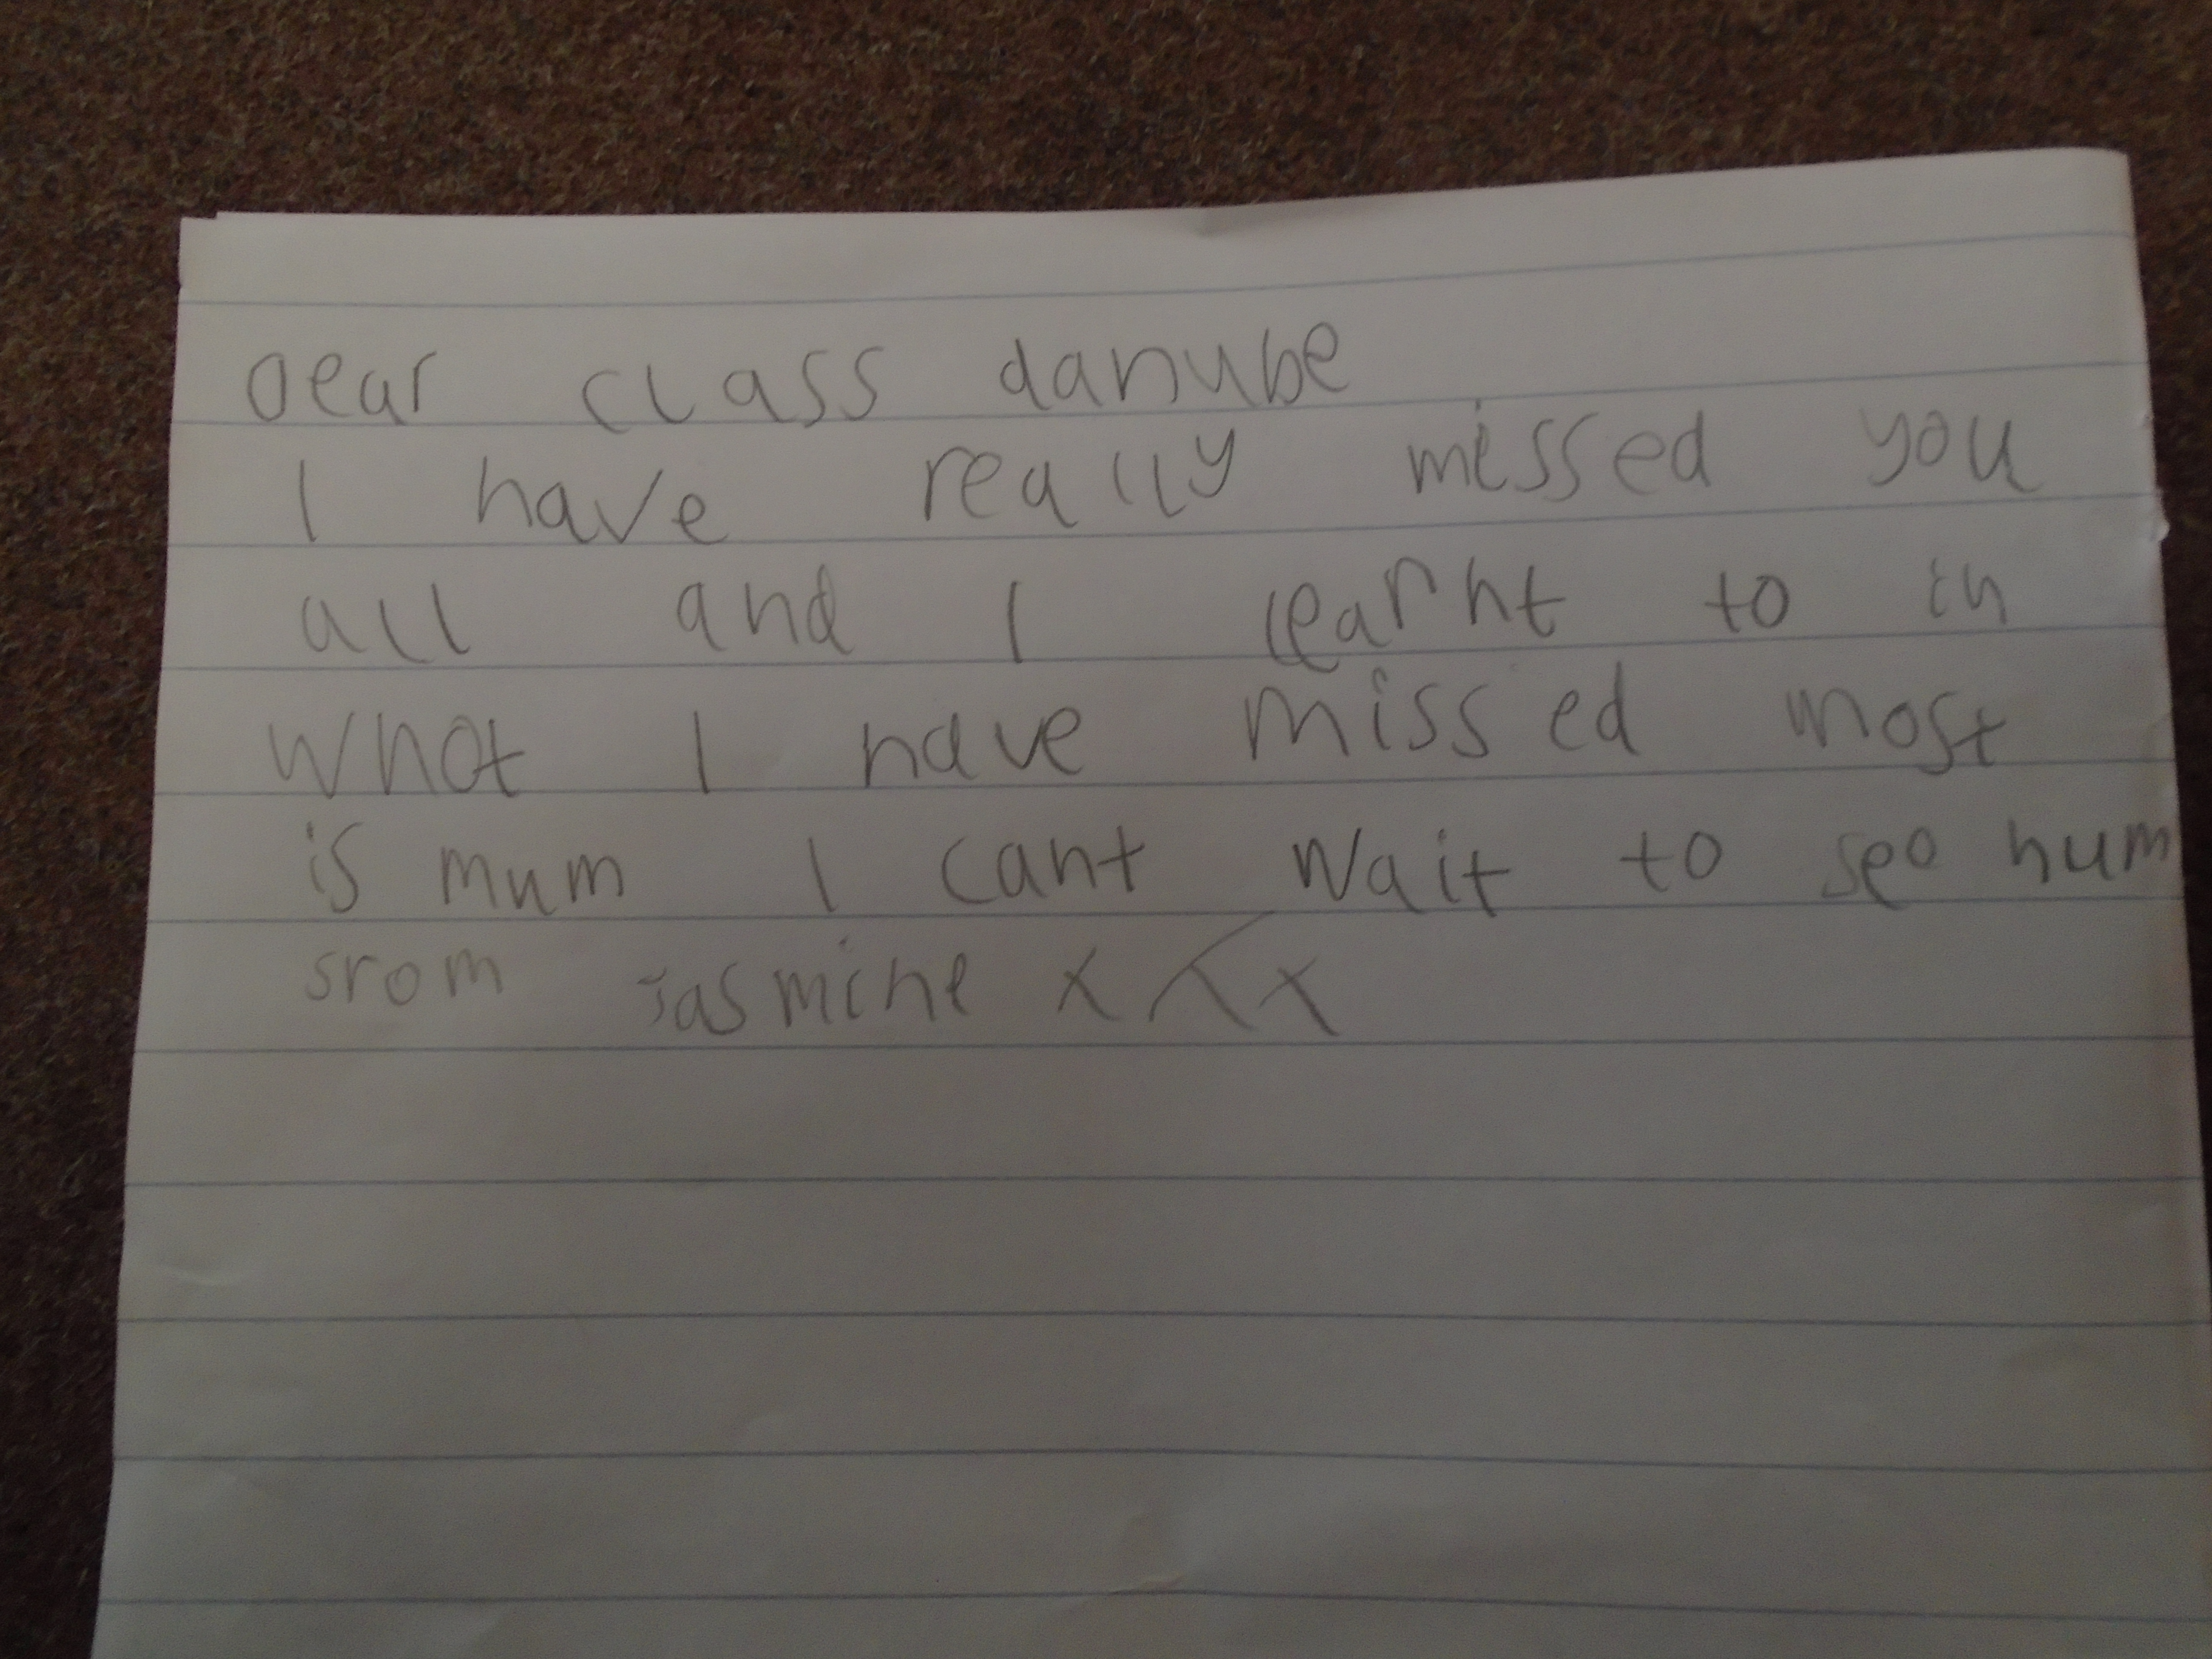 Dear class danube
I have really missed you
all and I learnt to in
what I have missed most
is mum I cant wait to see hum
srom Jasmine x x x